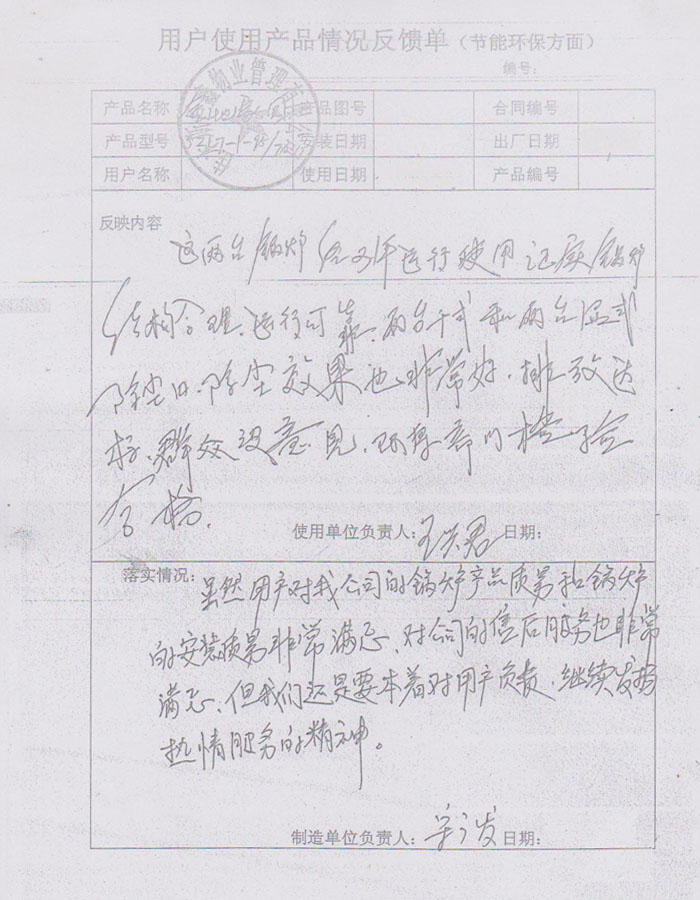 用户使用产品情况反馈单(节能环保方面)
编号:
产品名称 产品图号 合同编号
产品型号 安装日期 出厂日期
用户名称 使用日期 产品编号
物业管理有
反映内容
这两台锅炉经多年运行使用证实锅炉
结构合理、运行可靠、两台干式和两台湿式
除尘口、除尘效果也非常好,排放达
标、群众没意见,环保部门检验
合格.
使用单位负责人: 日期:
落实情况: 虽然用户对我公司的锅炉产品质量和锅炉
的安装质量非常满意、对公司的售后服务也非常
满意、但我们还是要本着对用户负责、继续发扬
热情服务的精神。
制造单位负责人: 日期: